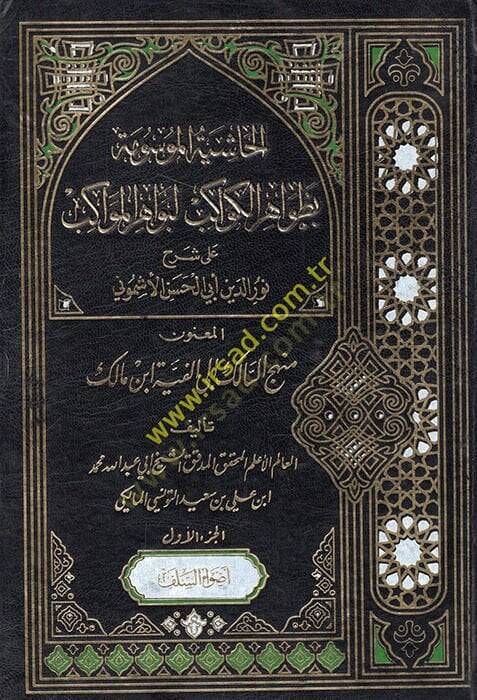 الحاشية الموسومة
بظواهر الكواكب لبواهر المواكب
على شرح
نور الدين أبي الحسن الأشموني
المعنون
منهج السالك إلى الفية ابن مالك
تأليف
العالم الأعلم المحقق المدقق الشيخ أبي عبد الله محمد
ابن علي بن سعيد التونسي المالكي
الجزء الأول
أضواء السلف
www.irsad.com.tr